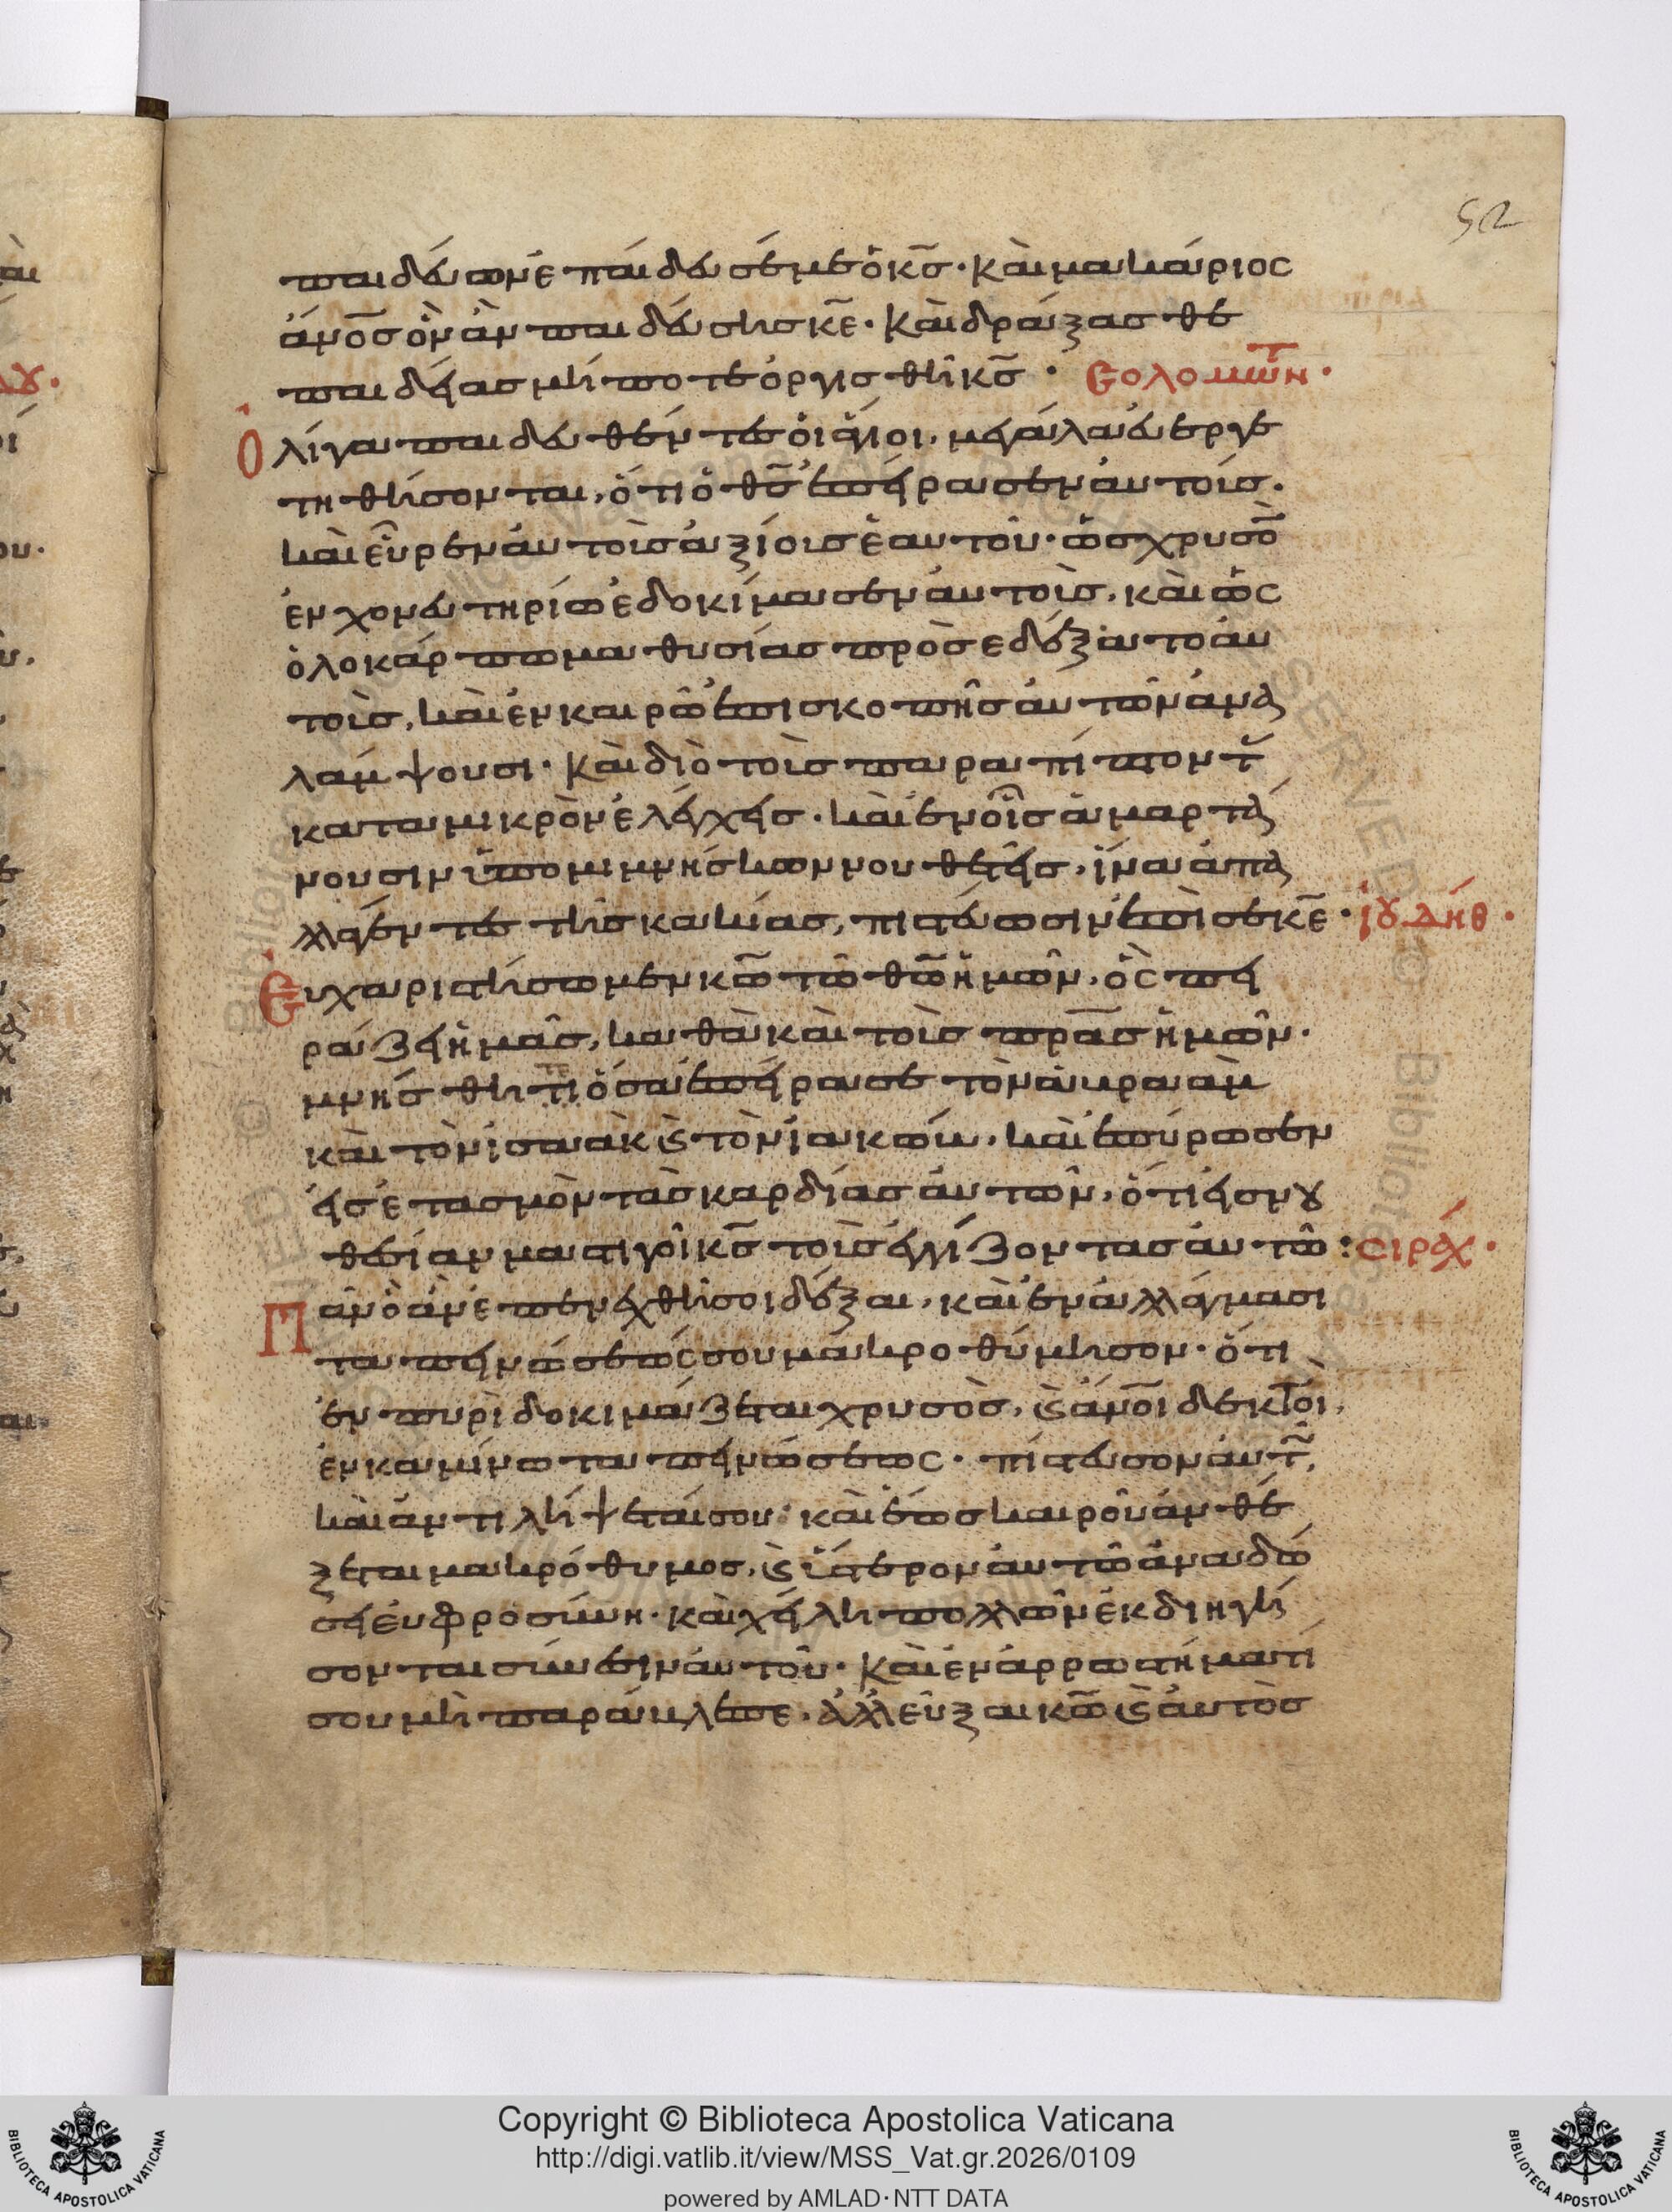 52
παιδεύων ἐπαίδευσέ με ὁ κ̅ς̅· καὶ μακάριος
ἄν̅ο̅ς̅ ὃν ἂν παιδεύσης κ̅ε̅· καὶ δράξασθε
παιδείας μήποτε ὀργισθῆ κ̅ς̅· Σολομῶν̅τ̅·
Ὀλίγα παιδευθέντες οἱ ἅγιοι, μεγάλα εὐεργε
τηθήσονται, ὅτι ὁ θ̅ς̅ ἐπείρασεν αὐτοὺς.
καὶ εὗρεν αὐτοὺς ἀξίους ἑαυτοῦ· ὡς χρυσὸ̅
ἐν χονευτηρίω ἐδοκίμασεν αὐτοὺς, καὶ ὡς
ὁλοκάρπωμα θυσίας προσεδέξατο αὐ
τοὺς, καὶ ἐν καιρῶ ἐπισκοπῆς αὐτῶν ἀνα
λάμψουσι· καὶ διὸ τοὺς παραπίπτοντ̅
κατα μικρὸν ἐλέγχεις· καὶ ἐν οἷς ἁμαρτά
νουσιν ὑπομιμνήσκων νουθετεῖς, ἵνα ἀπα
λλαγέντες τῆς κακίας, πιστεύσωσιν ἐπὶ σὲ κ̅ε̅· ἰουδήθ·
Εὐχαριστήσωμεν κ̅ω̅ τῶ θ̅ω̅ ἡμῶν, ὃς πει
ράζει ἡμᾶς, καθὰ καὶ τοὺς π̅ρ̅α̅ς̅ ἡμῶν·
μνήσθητι ὅσα ἐπείρασε τὸν ἀβραὰμ
καὶ τὸν ἰσαὰκ ϗ τὸν ἰακώβ, καὶ ἐπύρωσεν
εἰς ἐτασμὸν τὰς καρδίας αὐτῶν, ὅτι εἰς νου
θεσίαν μαστιγοῖ κ̅ς̅ τοὺς ἐγγίζοντας αὐτῶ: σιράχ·
Πᾶν ὃ ἂν ἐπενεχθῆ σοι δέξαι, καὶ ἐν ἀλλάγμασι
ταπεινώσεώς σου μακροθύμησον· ὅτι
ἐν πυρὶ δοκιμάζεται χρυσὸς, ϗ ἄν̅ο̅ι̅ δεκτοὶ,
ἐν καμίνω ταπεινώσεως· πίστευσον αὐτ̅ῶ̅,
καὶ ἀντιλήψεταί σου· καὶ ἕως καιροῦ ἀνθέ
ξεται μακρόθυμος, ϗ ὕστερον αὐτῶ ἀναδώ
σει εὐφροσύνη· καὶ χείλη πολλῶν ἐκδιηγή
σονται σύνεσιν αὐτοῦ· καὶ ἐν ἀρρωστήματί
σου μὴ παράβλεπε, ἀλλ' εὖξαι κ̅ω̅ ϗ αὐτὸς
Copyright © Biblioteca Apostolica Vaticana
http://digi.vatlib.it/view/MSS_Vat.gr.2026/0109
powered by AMLAD·NTT DATA
BIBLIOTECA APOSTOLICA VATICANA
BIBLIOTECA APOSTOLICA VATICANA